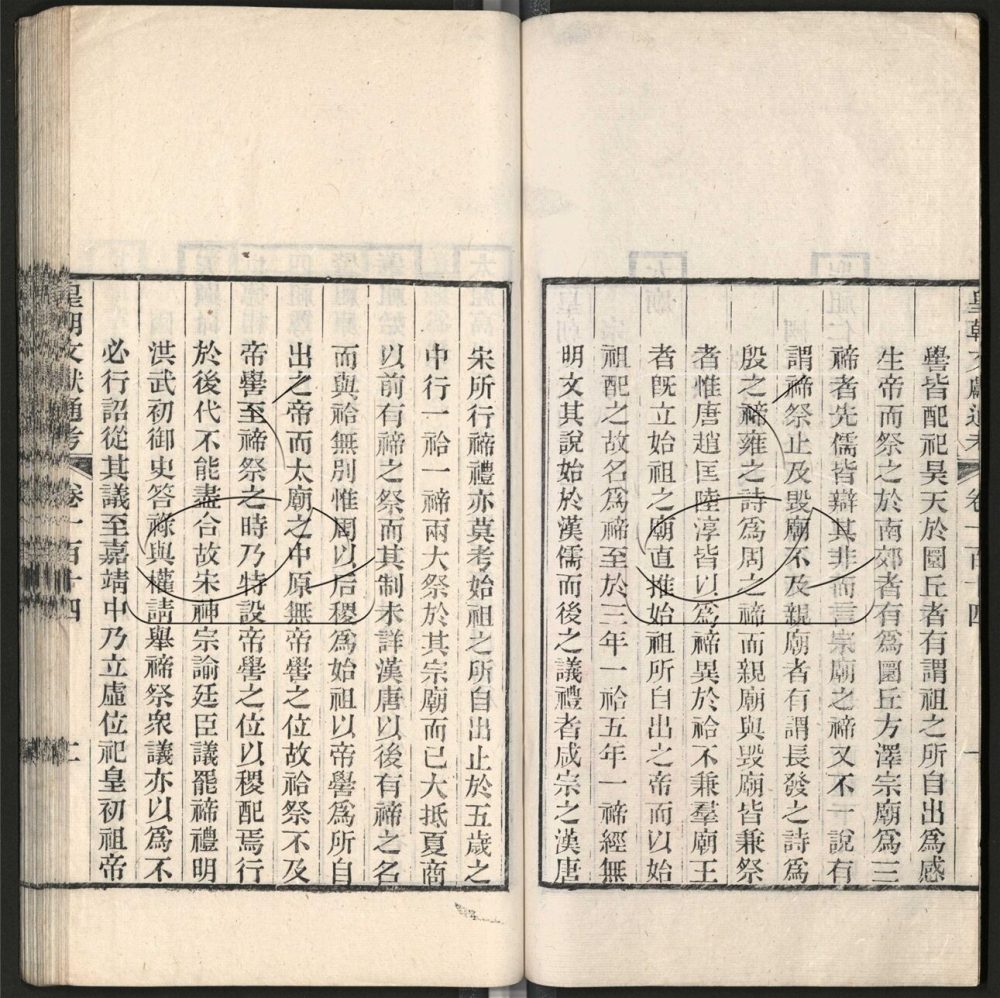 皇朝文獻通考 卷一百十四
嚳皆配祀昊天於圜丘者有謂祖之所自出爲感
生帝而祭之於南郊者有爲圜丘方澤宗廟爲三
禘者先儒皆辯其非而言宗廟之禘又不一說有
謂禘祭止及毀廟不及親廟者有謂長發之詩爲
殷之禘雍之詩爲周之禘而親廟與毀廟皆兼祭
者惟唐趙匡陸淳皆以爲禘異於祫不兼羣廟王
者旣立始祖之廟直推始祖所自出之帝而以始
祖配之故名爲禘至於三年一祫五年一禘經無
明文其說始於漢儒而後之議禮者咸宗之漢唐
宋所行禘禮亦莫考始祖之所自出止於五歲之
中行一祫一禘兩大祭於其宗廟而已大抵夏商
以前有禘之祭而其制未詳漢唐以後有禘之名
而與祫無別惟周以后稷爲始祖以帝嚳爲所自
出之帝而太廟之中原無帝嚳之位故祫祭不及
帝嚳至禘祭之時乃特設帝嚳之位以稷配焉行
於後代不能盡合故宋神宗諭廷臣議罷禘禮明
洪武初御史答祿與權請舉禘祭衆議亦以爲不
必行詔從其議至嘉靖中乃立虛位祀皇初祖帝
皇朝文獻通考 卷一百十四